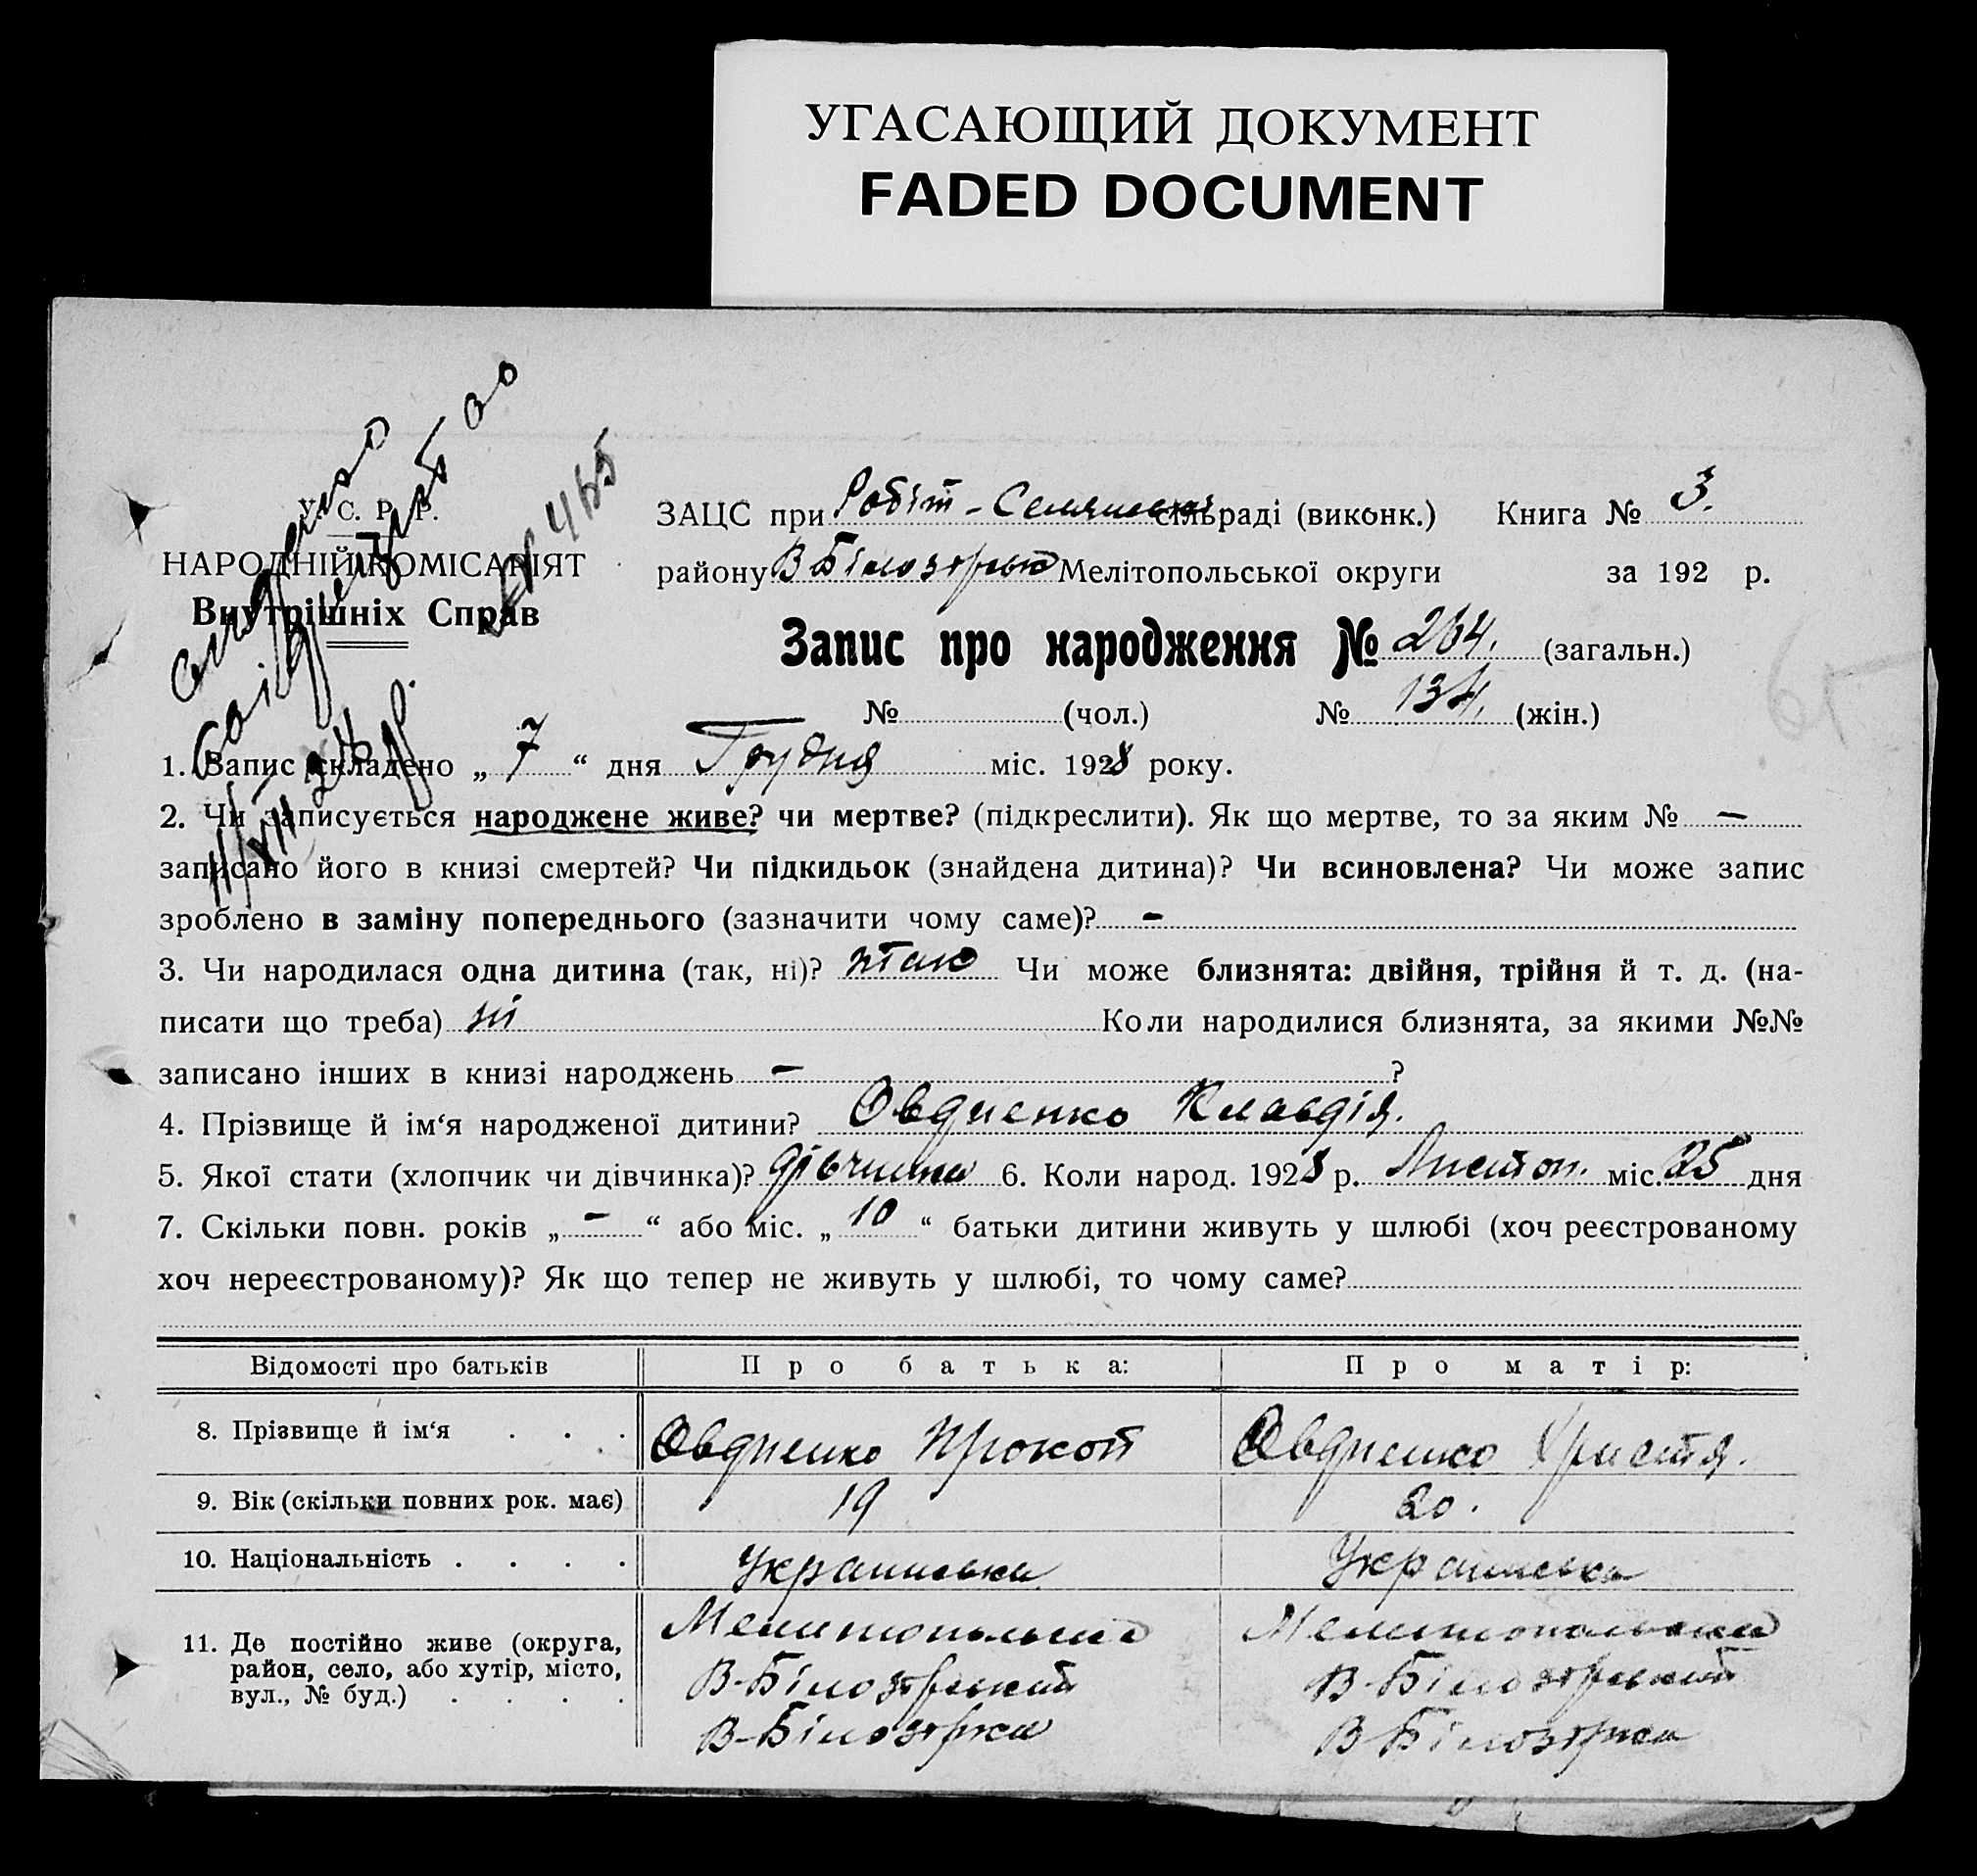 УГАСАЮЩИЙ ДОКУМЕНТ
FADED DOCUMENT
У. С. Р. Р.
НАРОДНІЙ КОМІСАРІЯТ
Внутрішніх Справ
ЗАЦС при Робіт-Селянській сільраді (виконк.) Книга № 3.
району В Білозірськ Мелітопольської округи за 192 р.
Запис про народження № 264. (загальн.)
№ (чол.) № 134. (жін.)
1. Запис складено „ 7 “ дня Грудня міс. 1928 року.
2. Чи записується народжене живе? чи мертве? (підкреслити). Як що мертве, то за яким № —
записано його в книзі смертей? Чи підкидьок (знайдена дитина)? Чи всиновлена? Чи може запис
зроблено в заміну попереднього (зазначити чому саме)? -
3. Чи народилася одна дитина (так, ні)? так Чи може близнята: двійня, трійня й т. д. (на-
писати що треба) ні Коли народилися близнята, за якими №№
записано інших в книзі народжень — ?
4. Прізвище й ім‘я народженої дитини? Овдиенко Клавдія.
5. Якої стати (хлопчик чи дівчинка)? дівчина 6. Коли народ. 1928 р. Листоп. міс. 25 дня
7. Скільки повн. років „ - “ або міс. „ 10 “ батьки дитини живуть у шлюбі (хоч реєстрованому
хоч нереєстрованому)? Як що тепер не живуть у шлюбі, то чому саме?
Відомості про батьків Про батька: Про матір:
8. Прізвище й ім‘я . . . Овдиенко Прокоп Овдиенко Христя.
9. Вік (скільки повних рок. має) 19 20.
10. Національність . . . . Украинська Украинська
11. Де постійно живе (округа, Мелитопольска Мелитопольска
район, село, або хутір, місто, В-Білозірський В-Білозірський
вул., № буд.) . . . . В-Білозірка В Білозірка